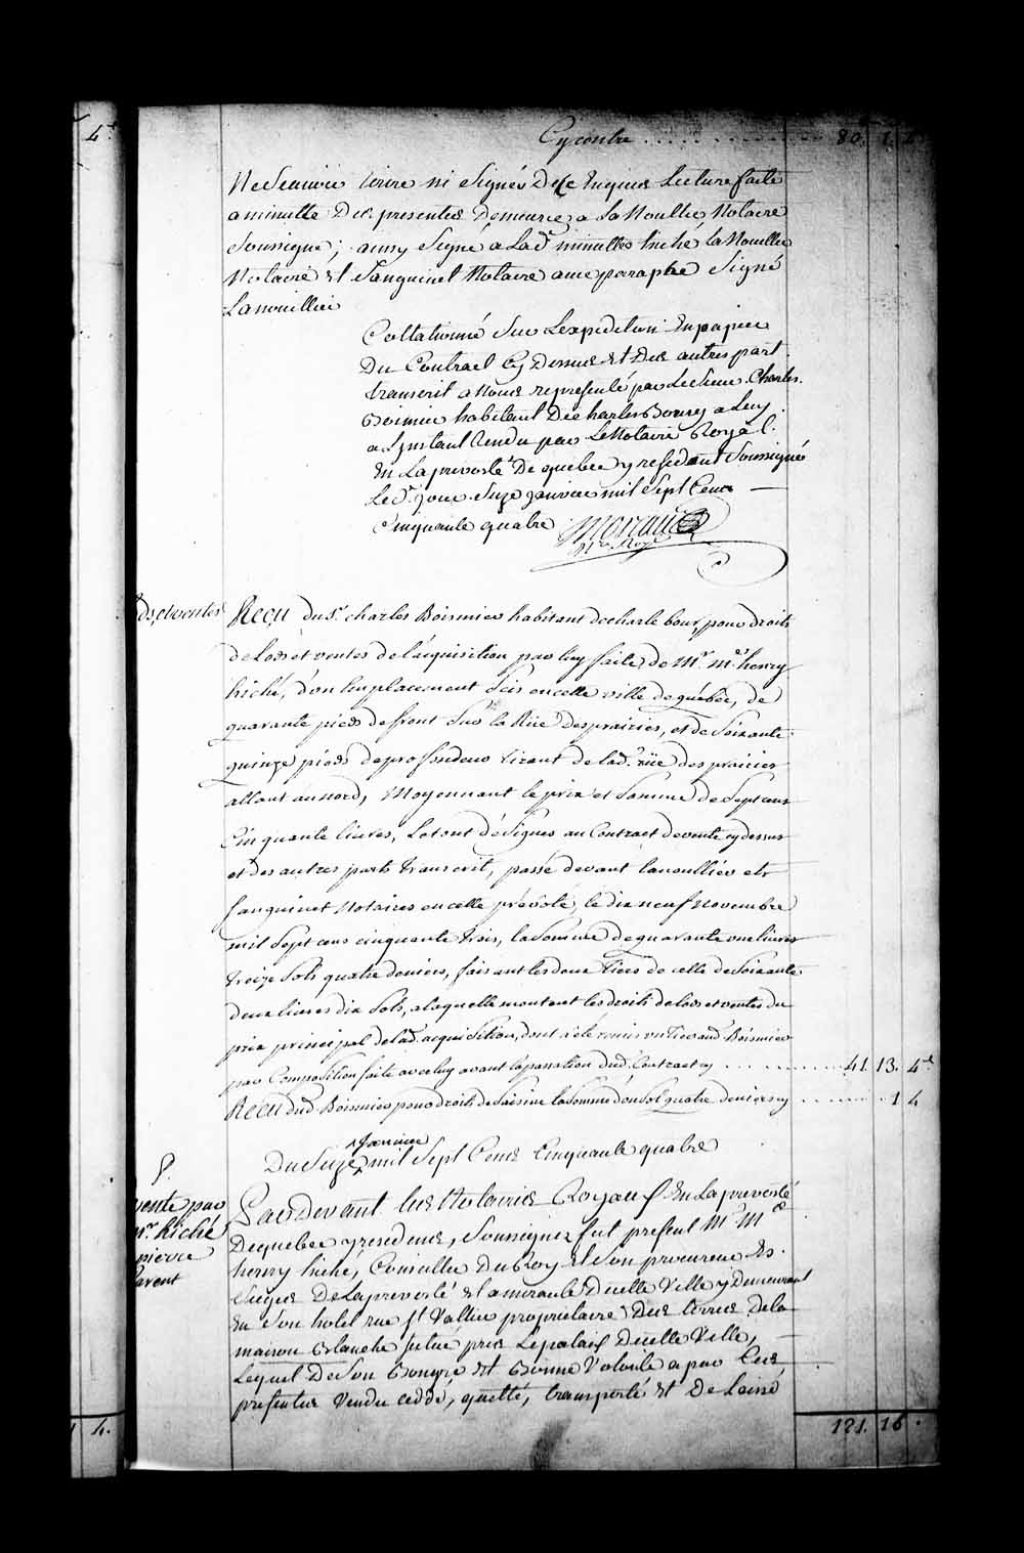 4d
Cy contre . . . . . . . . . . . . 80. 1. 4
Ne Scavoir Ecrire ni Signer De ce Enquis Lecture faite
a minutte Des presentes Demeurée a La Noullier Notaire
Soussigné; aussy Signé a Lad.e minutte hiché la Nouillier
Notaire Et Sanguinet Notaire avec paraphe Signé
Lanouillier
Collationné Sur Lexpedition En papier
Du Contract Cy Dessus Et Des autres part
transcrit a Nous représenté par Le Sieur Charles
Boimier habitant De charles Bourg a Luy
a Linstant Rendu par Le Notaire Royal
En La prevosté De quebec y residant Soussigné
Le d. jour Seize Janvier mil Sept Cens
Cinquante quatre Moraud
Nre Roy.
ds, et ventes
Reçu du S.r charles Boismier habitant de charle bour, pour droits
de Lods et ventes de l'acquisition par luy faite de Mr. Me henry
hiché, d'un Emplacement Scis en cette ville de québec, de
quarante pieds de front Sur la Rüe Desprairies, et de Soixante
quinze pieds de profondeur tirant de lad.e rüe des prairies
allant au nord, Moyennant le prix et Somme de Sept cens
Cinquante livres, Le tout désigné au Contract de vente cy dessus
et des autres parts transcrit, passé devant lanoullier et
Sanguinet Notaires en cette prévôté, le dix neuf Novembre
mil Sept cens cinquante trois, la Somme de quarante une livres
treize Sols quatre deniers, faisant les deux tiers de celle de Soixante
deux livres dix Sols, a laquelle montent les droits de lods et ventes du
prix principal de lad. acquisition, dont a été remis un Tiers aud. Boismier
par Composition faite avec luy avant la passation dud. Contract cy . . . . . . . 41. 13. 4d
Reçu dud. Boismier pour droits de Saisine la Somme d'un Sol quatre deniers cy . . . . . . . 1 4
Du Seize Janvier mil Sept Cens Cinquante quatre
P.
vente par
mr. hiché
pierre
parent
Pardevant Les Notaires Royaux En La prevosté
De quebec y residens, Soussignés fut present Mr. Me
henry hiché, Conseiller Du Roy Et Son procureur Es
Sieges De La prevosté Et amirauté D'icelle Ville y Demeurant
En Son hotel rue St Vallier propriétaire Des terres De la
maison Blanche Scituë près Le palais D'icelle Ville,
Lequel De Son Bon gré Et Bonne Volonté a par Ces
presentes Vendu ceddé, quitté, transporté Et De Laissé
4. 121. 16.